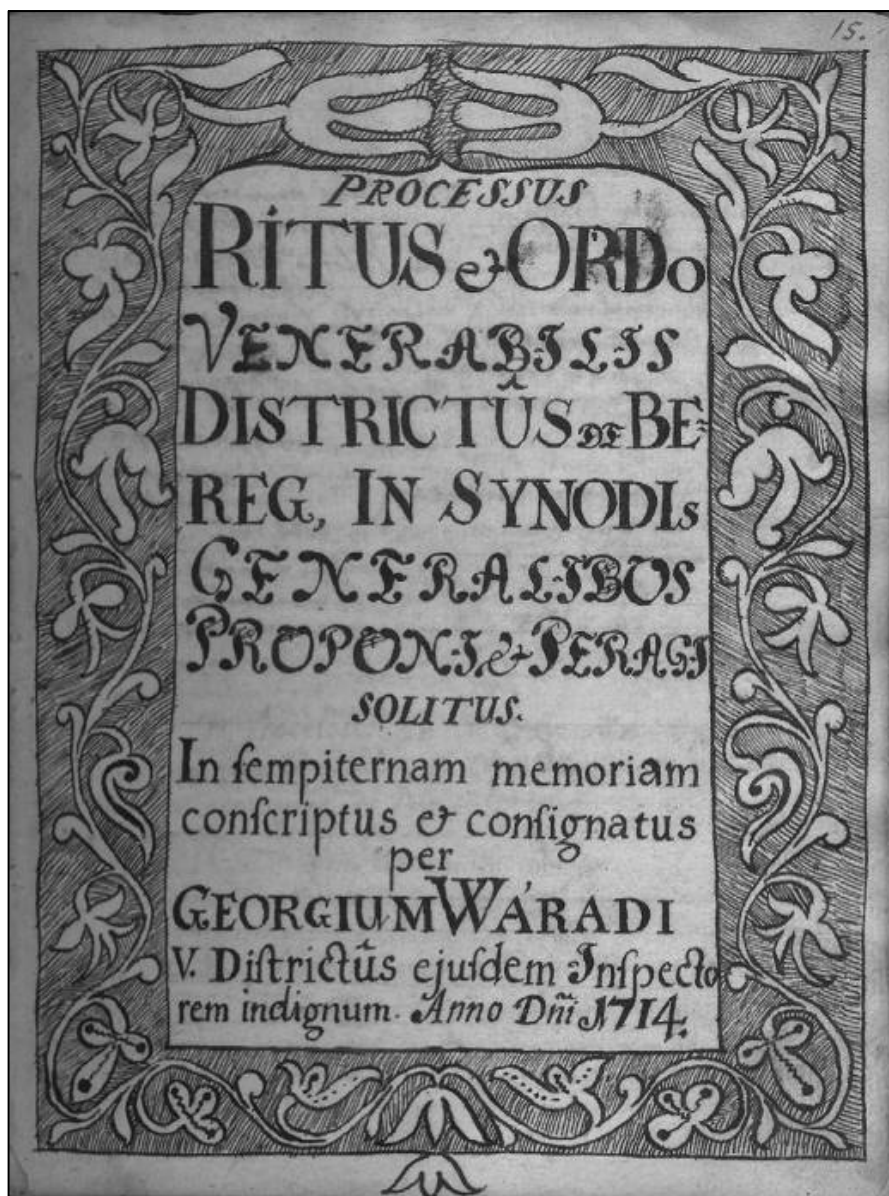 15.
PROCESSUS
RITUS & ORDO
VENERABILIS
DISTRICTÛS DE BE=
REG, IN SYNODIS
GENERALIBUS
PROPONI & PERAGI
SOLITUS.
In ſempiternam memoriam
conſcriptus & conſignatus
per
GEORGIUM WÁRADI
V. Diſtrictûs ejuſdem Inſpecto
rem indignum. Anno Dn̄i 1714.